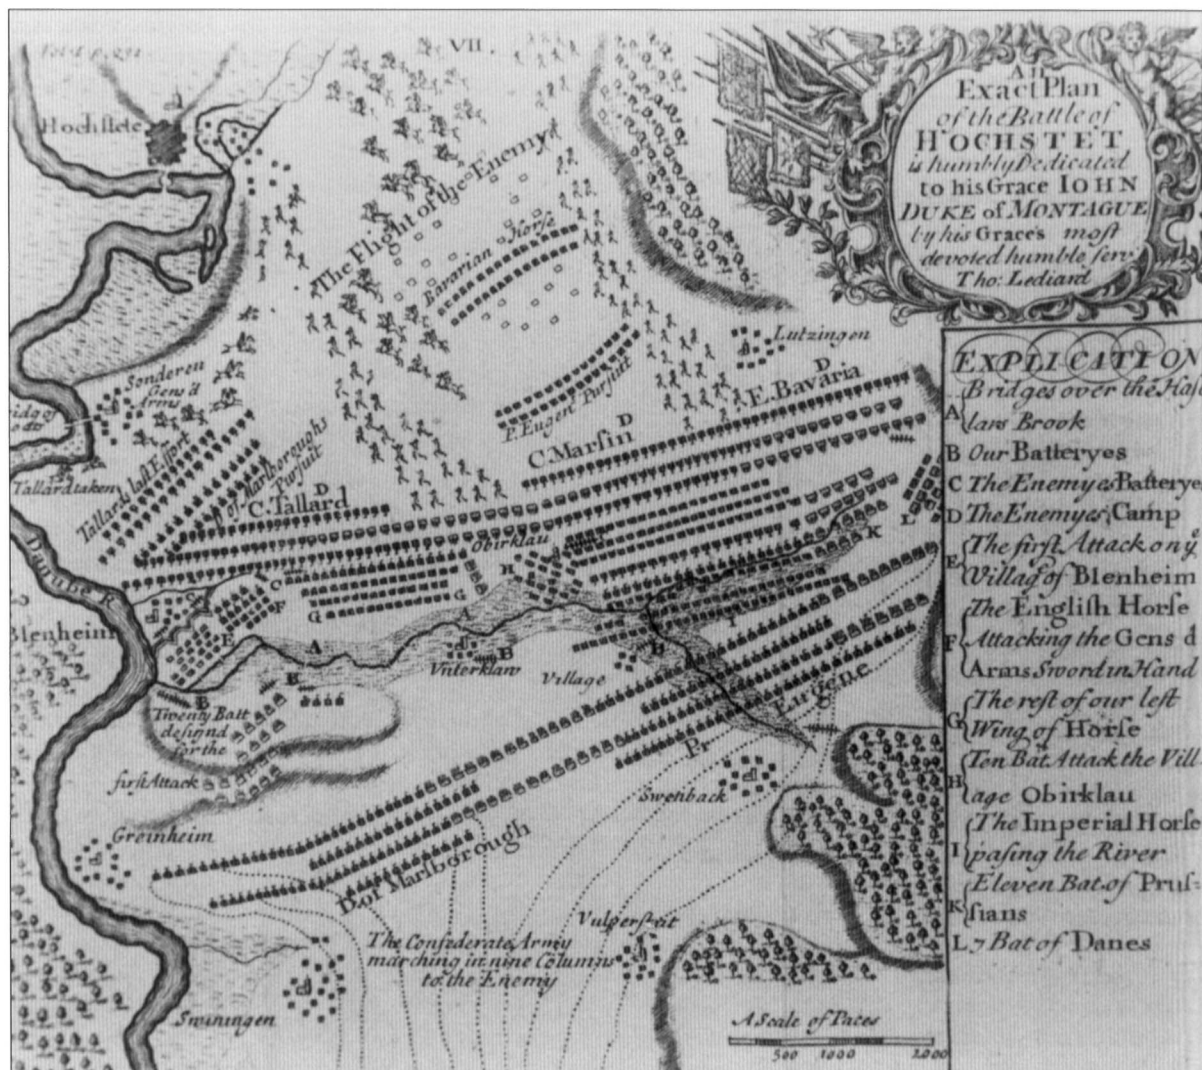 VII.
Hochstete
An
Exact Plan
of the Battle of
HOCHSTET
is humbly Dedicated
to his Grace IOHN
DUKE of MONTAGUE
by his Grace's most
devoted humble serv.
Tho: Lediard
The Flight of the Enemy
Bavarian Horse
P. Eugen Pursuit
Lutzingen
Sonderen
Gens'd
Arms
Tallard taken
Tallards last Effort
D of Marlboroughs
Pursuit
D
E. Bavaria
D
C. Marsin
D
C. Tallard
Obirklau
Danube R.
Blenheim
C
C
E
F
G
G
H
K
L
I
A
A
B
B
B
B
Unterklaw
Village
Twenty Batt
desinnd
for the
first Attack
Pr Eugene
Swenback
Greinheim
D. of Marlborough
Vulpersteit
The Confederate Army
marching in nine Columns
to the Enemy
Swiningen
A Scale of Paces
500 1000 2000
EXPLICATION
A Bridges over the Has
lars Brook
B Our Batteryes
C The Enemyes Batterye
D The Enemyes Camp
E The first Attack on yᵉ
Villag of Blenheim
F The English Horse
Attacking the Gens d
Arms Sword in Hand
G The rest of our left
Wing of Horse
H Ten Bat. Attack the Vill-
age Obirklau
I The Imperial Horse
pasing the River
K Eleven Bat. of Prus-
sians
L 7 Bat of Danes